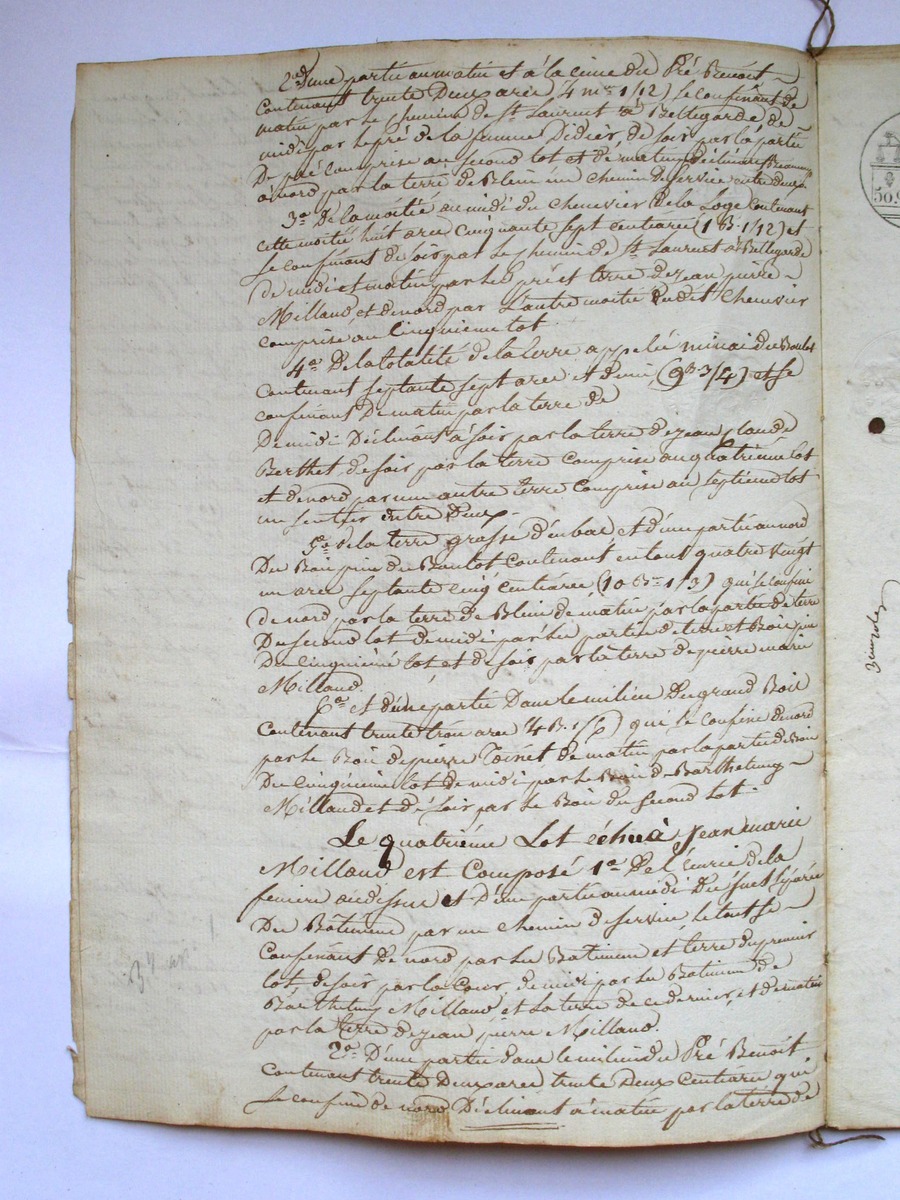 2º d'une partie au matin et à la cime du Pré Benoit
Contenant trente Deux ares (4 ms 1/12) se confinant de
matin par le chemin de St Laurent à Bellegarde de
midi par le pré de la femme Didier, de soir par la partie
De pré Comprise au second lot et de matin déclinant
à nord par la terre de Blein un chemin de service entre deux
3º De la moitié au midi du chenevier de la Loge Contenant
cette moitié huit ares Cinquante sept Centiares (1 B. 1/12) et
se confinant de soir par le chemin de St Laurent à Bellegarde
de midi et matin par les pré et terre de jean pierre
Milland, et de nord par L'autre moitié dudit chenevier
comprise au Cinquieme lot
4º De la totalité de la terre appelée minai du Boulot
Contenant septante sept ares et demi (9 B 3/4) et se
confinant De matin par la terre de
De midi Déclinant à soir par la terre de jean Claude
Berthet de soir par la terre comprise au quatrième lot
et de nord par une autre terre Comprise au septieme lot
un sentier entre Deux.
5º De la terre grasse d'en bas et d'une partie au nord
Du Bois pin du Boulot Contenant en tout quatre vingt
un ares septante cinq centiares (10 Bes 1/3) qui se confine
de nord par la terre de Blein de matin par la partie de terre
Du second lot de midi par les partie de terre et Bois pin
Du Cinquieme lot et de soir par la terre de pierre marie
Milland.
6º et d'une partie Dans le milieu Du grand Bois
Contenant trente trois ares (4 B. 1/6) qui se confine de nord
par le Bois de pierre Toinet de matin par la partie de Bois
Du Cinquieme lot de midi par le Bois de Barthelemy
Milland et de soir par le Bois du second lot.
Le quatrième Lot échu à Jean marie
Milland est Composé 1º De l'écurie de la
feniere au dessus et D'une partie au midi Du suel séparée
Du Bâtiment par un chemin de service le tout se
Confinant De nord par les Batiment et terre du premier
lot, de soir par la Cour, de midi par les Batiment de
Barthelemy Milland et la terre de ce dernier, et de matin
par la terre de jean pierre Milland.
2º D'une partie dans le milieu du Pré Benoit
Contenant trente Deux ares trente Deux centiares qui
se confine de nord Déclinant à matin par la terre de
50.